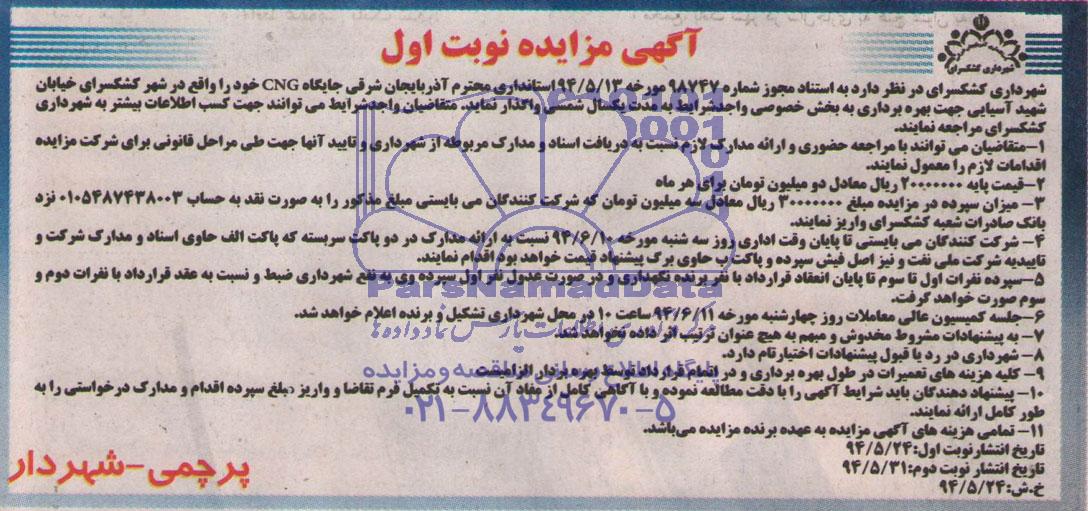 آگهی مزایده نوبت اول
شهرداری کشکسرای
شهرداری کشکسرای در نظر دارد به استناد مجوز شماره ۹۸۷۴۷ مورخه ۹۴/۵/۱۳ استانداری محترم آذربایجان شرقی جایگاه CNG خود را واقع در شهر کشکسرای خیابان
شهید آسیایی جهت بهره برداری به بخش خصوصی واجد شرایط به مدت یکسال شمسی واگذار نماید. متقاضیان واجد شرایط می توانند جهت کسب اطلاعات بیشتر به شهرداری
کشکسرای مراجعه نمایند.
۱- متقاضیان می توانند با مراجعه حضوری و ارائه مدارک لازم نسبت به دریافت اسناد و مدارک مربوطه از شهرداری و تایید آنها جهت طی مراحل قانونی برای شرکت مزایده
اقدامات لازم را معمول نمایند.
۲- قیمت پایه ۲۰۰۰۰۰۰۰ ریال معادل دو میلیون تومان برای هر ماه
۳- میزان سپرده در مزایده مبلغ ۳۰۰۰۰۰۰۰ ریال معادل سه میلیون تومان که شرکت کنندگان می بایستی مبلغ مذکور را به صورت نقد به حساب ۰۱۰۵۴۸۷۴۳۸۰۰۳ نزد
بانک صادرات شعبه کشکسرای واریز نمایند.
۴- شرکت کنندگان می بایستی تا پایان وقت اداری روز سه شنبه مورخه ۹۴/۶/۱۰ نسبت به ارائه مدارک در دو پاکت سربسته که پاکت الف حاوی اسناد و مدارک شرکت و
تاییدیه شرکت ملی نفت و نیز اصل فیش سپرده و پاکت ب حاوی برگ پیشنهاد قیمت خواهد بود اقدام نمایند.
۵- سپرده نفرات اول تا سوم تا پایان انعقاد قرارداد با نفر برنده نگهداری و در صورت عدول نفر اول سپرده وی به نفع شهرداری ضبط و نسبت به عقد قرارداد با نفرات دوم و
سوم صورت خواهد گرفت.
۶- جلسه کمیسیون عالی معاملات روز چهارشنبه مورخه ۹۴/۶/۱۱ ساعت ۱۰ در محل شهرداری تشکیل و برنده اعلام خواهد شد.
۷- به پیشنهادات مشروط مخدوش و مبهم به هیچ عنوان ترتیب اثر داده نخواهد شد.
۸- شهرداری در رد یا قبول پیشنهادات اختیار تام دارد.
۹- کلیه هزینه های تعمیرات در طول بهره برداری و در اتمام قرارداد توسط بهره بردار الزامیست
۱۰- پیشنهاد دهندگان باید شرایط آگهی را با دقت مطالعه نموده و با آگاهی کامل از مفاد آن نسبت به تکمیل فرم تقاضا و واریز مبلغ سپرده اقدام و مدارک درخواستی را به
طور کامل ارائه نمایند.
۱۱- تمامی هزینه های آگهی مزایده به عهده برنده مزایده می‌باشد.
تاریخ انتشار نوبت اول: ۹۴/۵/۲۴
تاریخ انتشار نوبت دوم: ۹۴/۵/۳۱
خ.ش: ۹۴/۵/۲۴
پرچمی-شهردار
ParsNamadData
۰۲۱-۸۸۳۴۹۶۷۰-۵